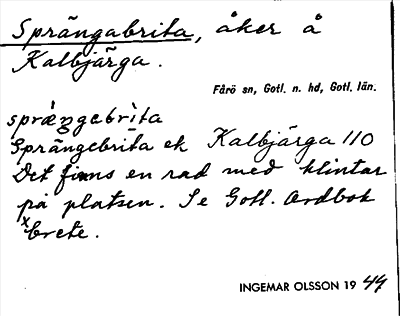 Sprängabrita, åker å
Kalbjärga.
Fårö sn, Gotl. n. hd, Gotl. län.
sprèngebrìta
Sprängebrita ek Kalbjärga 110
Det finns en rad med klintar
på platsen. Se Gotl. Ordbok
x brete.
INGEMAR OLSSON 19 44